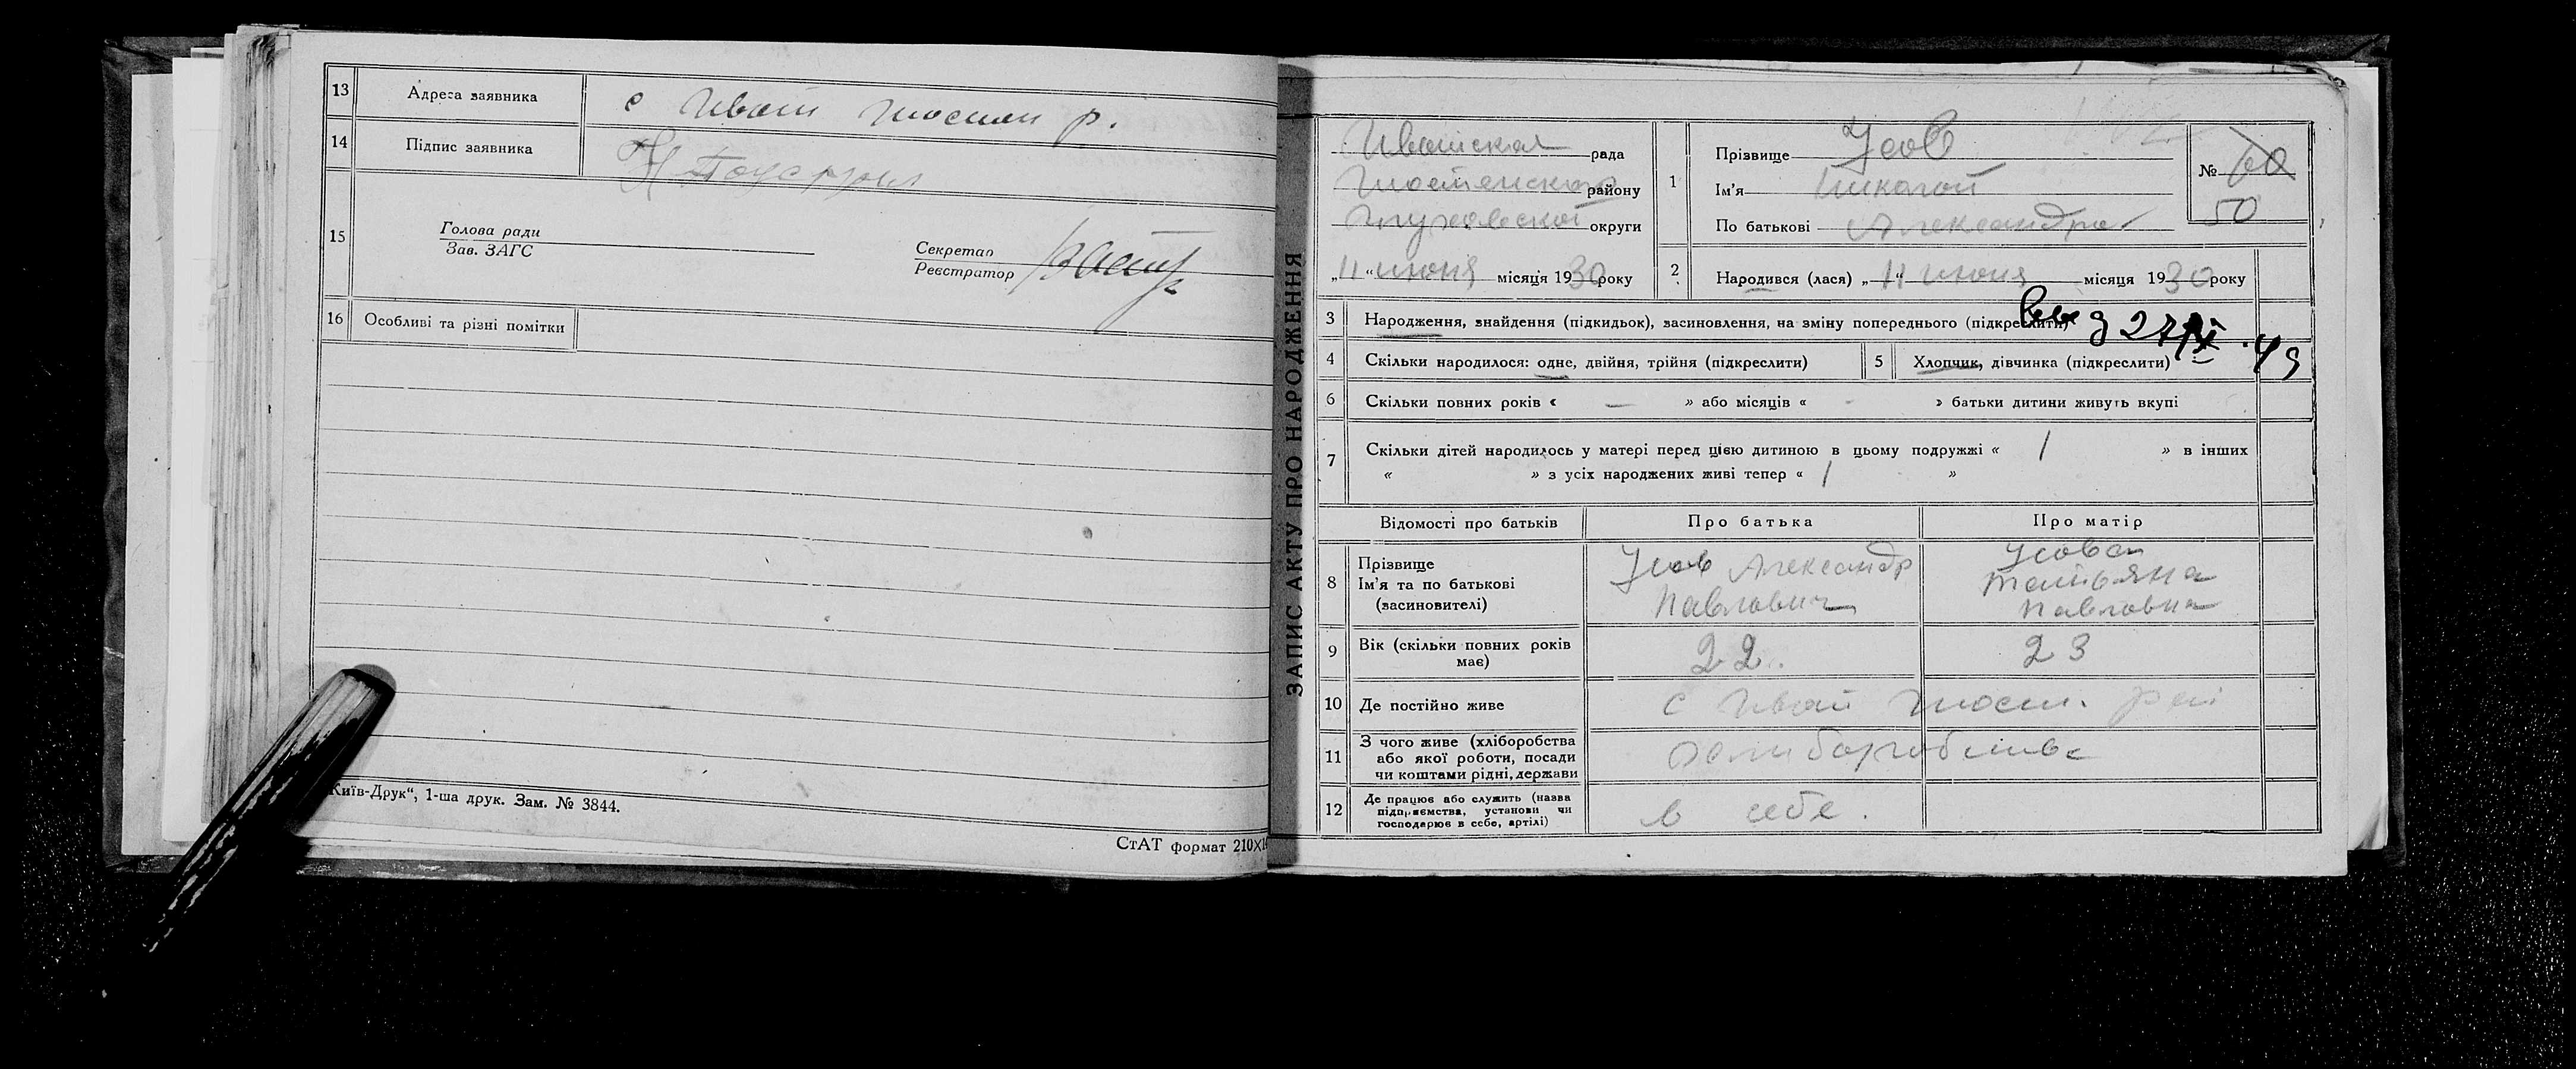 13 Адреса заявника с Ивот шостен р.
14 Підпис заявника
15 Голова ради
Зав. ЗАГС
Секретар
Реєстратор
16 Особливі та різні помітки
Київ-Друк“, 1-ша друк. Зам. № 3844.
СтАТ формат 210×1
ЗАПИС АКТУ ПРО НАРОДЖЕННЯ
Ивотская рада
Шостенского району
Глуховской округи
„11“ июня місяця 1930 року
1 Прізвище Усов
Ім’я Николай
По батькові Александров
№ 60
50
2 Народився (лася) „11“ июня місяця 1930 року
3 Народження, знайдення (підкидьок), засиновлення, на зміну попереднього (підкреслити)
4 Скільки народилося: одне, двійня, трійня (підкреслити)
5 Хлопчик, дівчинка (підкреслити)
6 Скільки повних років « — » або місяців « - » батьки дитини живуть вкупі
7 Скільки дітей народилось у матері перед цією дитиною в цьому подружжі « 1 » в інших
« » з усіх народжених живі тепер « 1 »
Відомості про батьків Про батька Про матір
8 Прізвище
Ім’я та по батькові
(засиновителі)
Усов Александр
Павлович
Усова
Татьяна
Павловна
9 Вік (скільки повних років
має)
22. 23
10 Де постійно живе с Ивот шост. рай
11 З чого живе (хліборобства
або якої роботи, посади
чи коштами рідні, держави
12 Де працює або служить (назва
підприємства, установи чи
господарює в себе, артілі)
в себе.